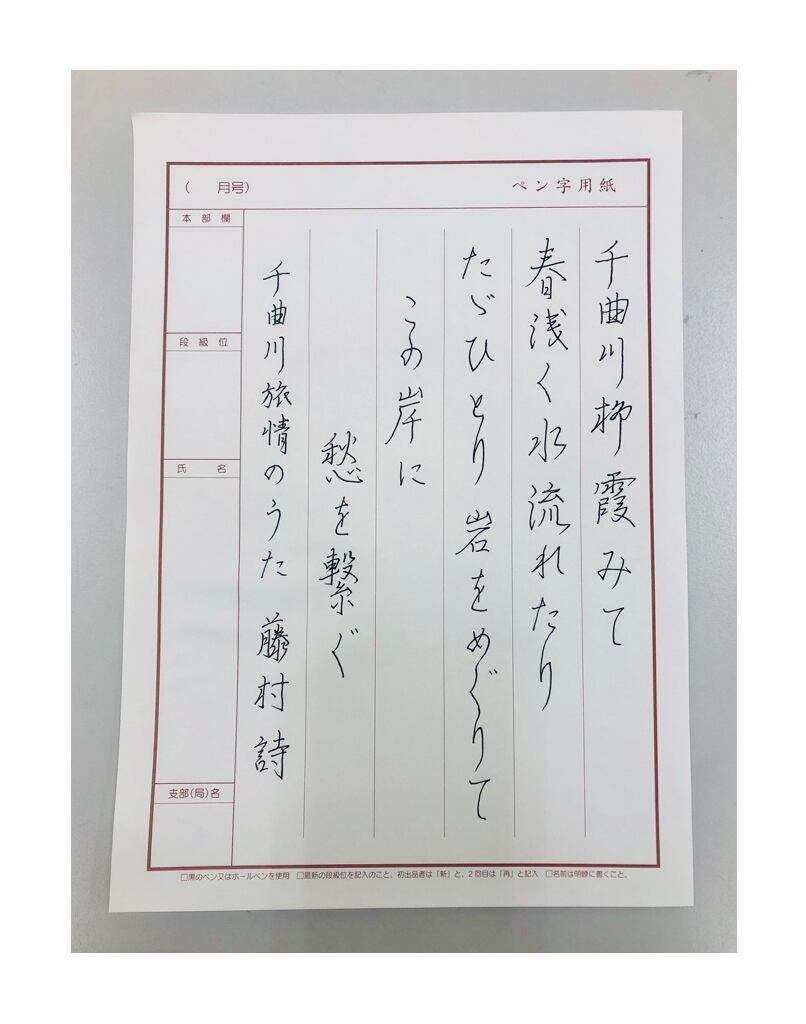 (　月号)
ペン字用紙
千曲川柳霞みて
春浅く水流れたり
たゞひとり 岩をめぐりて
この岸に
愁を繋ぐ
千曲川旅情のうた 藤村詩
本部欄
段級位
氏名
支部(局)名
□黒のペン又はボールペンを使用 □最新の段級位を記入のこと。初出品者は「新」と、2回目は「再」と記入 □名前は明瞭に書くこと。